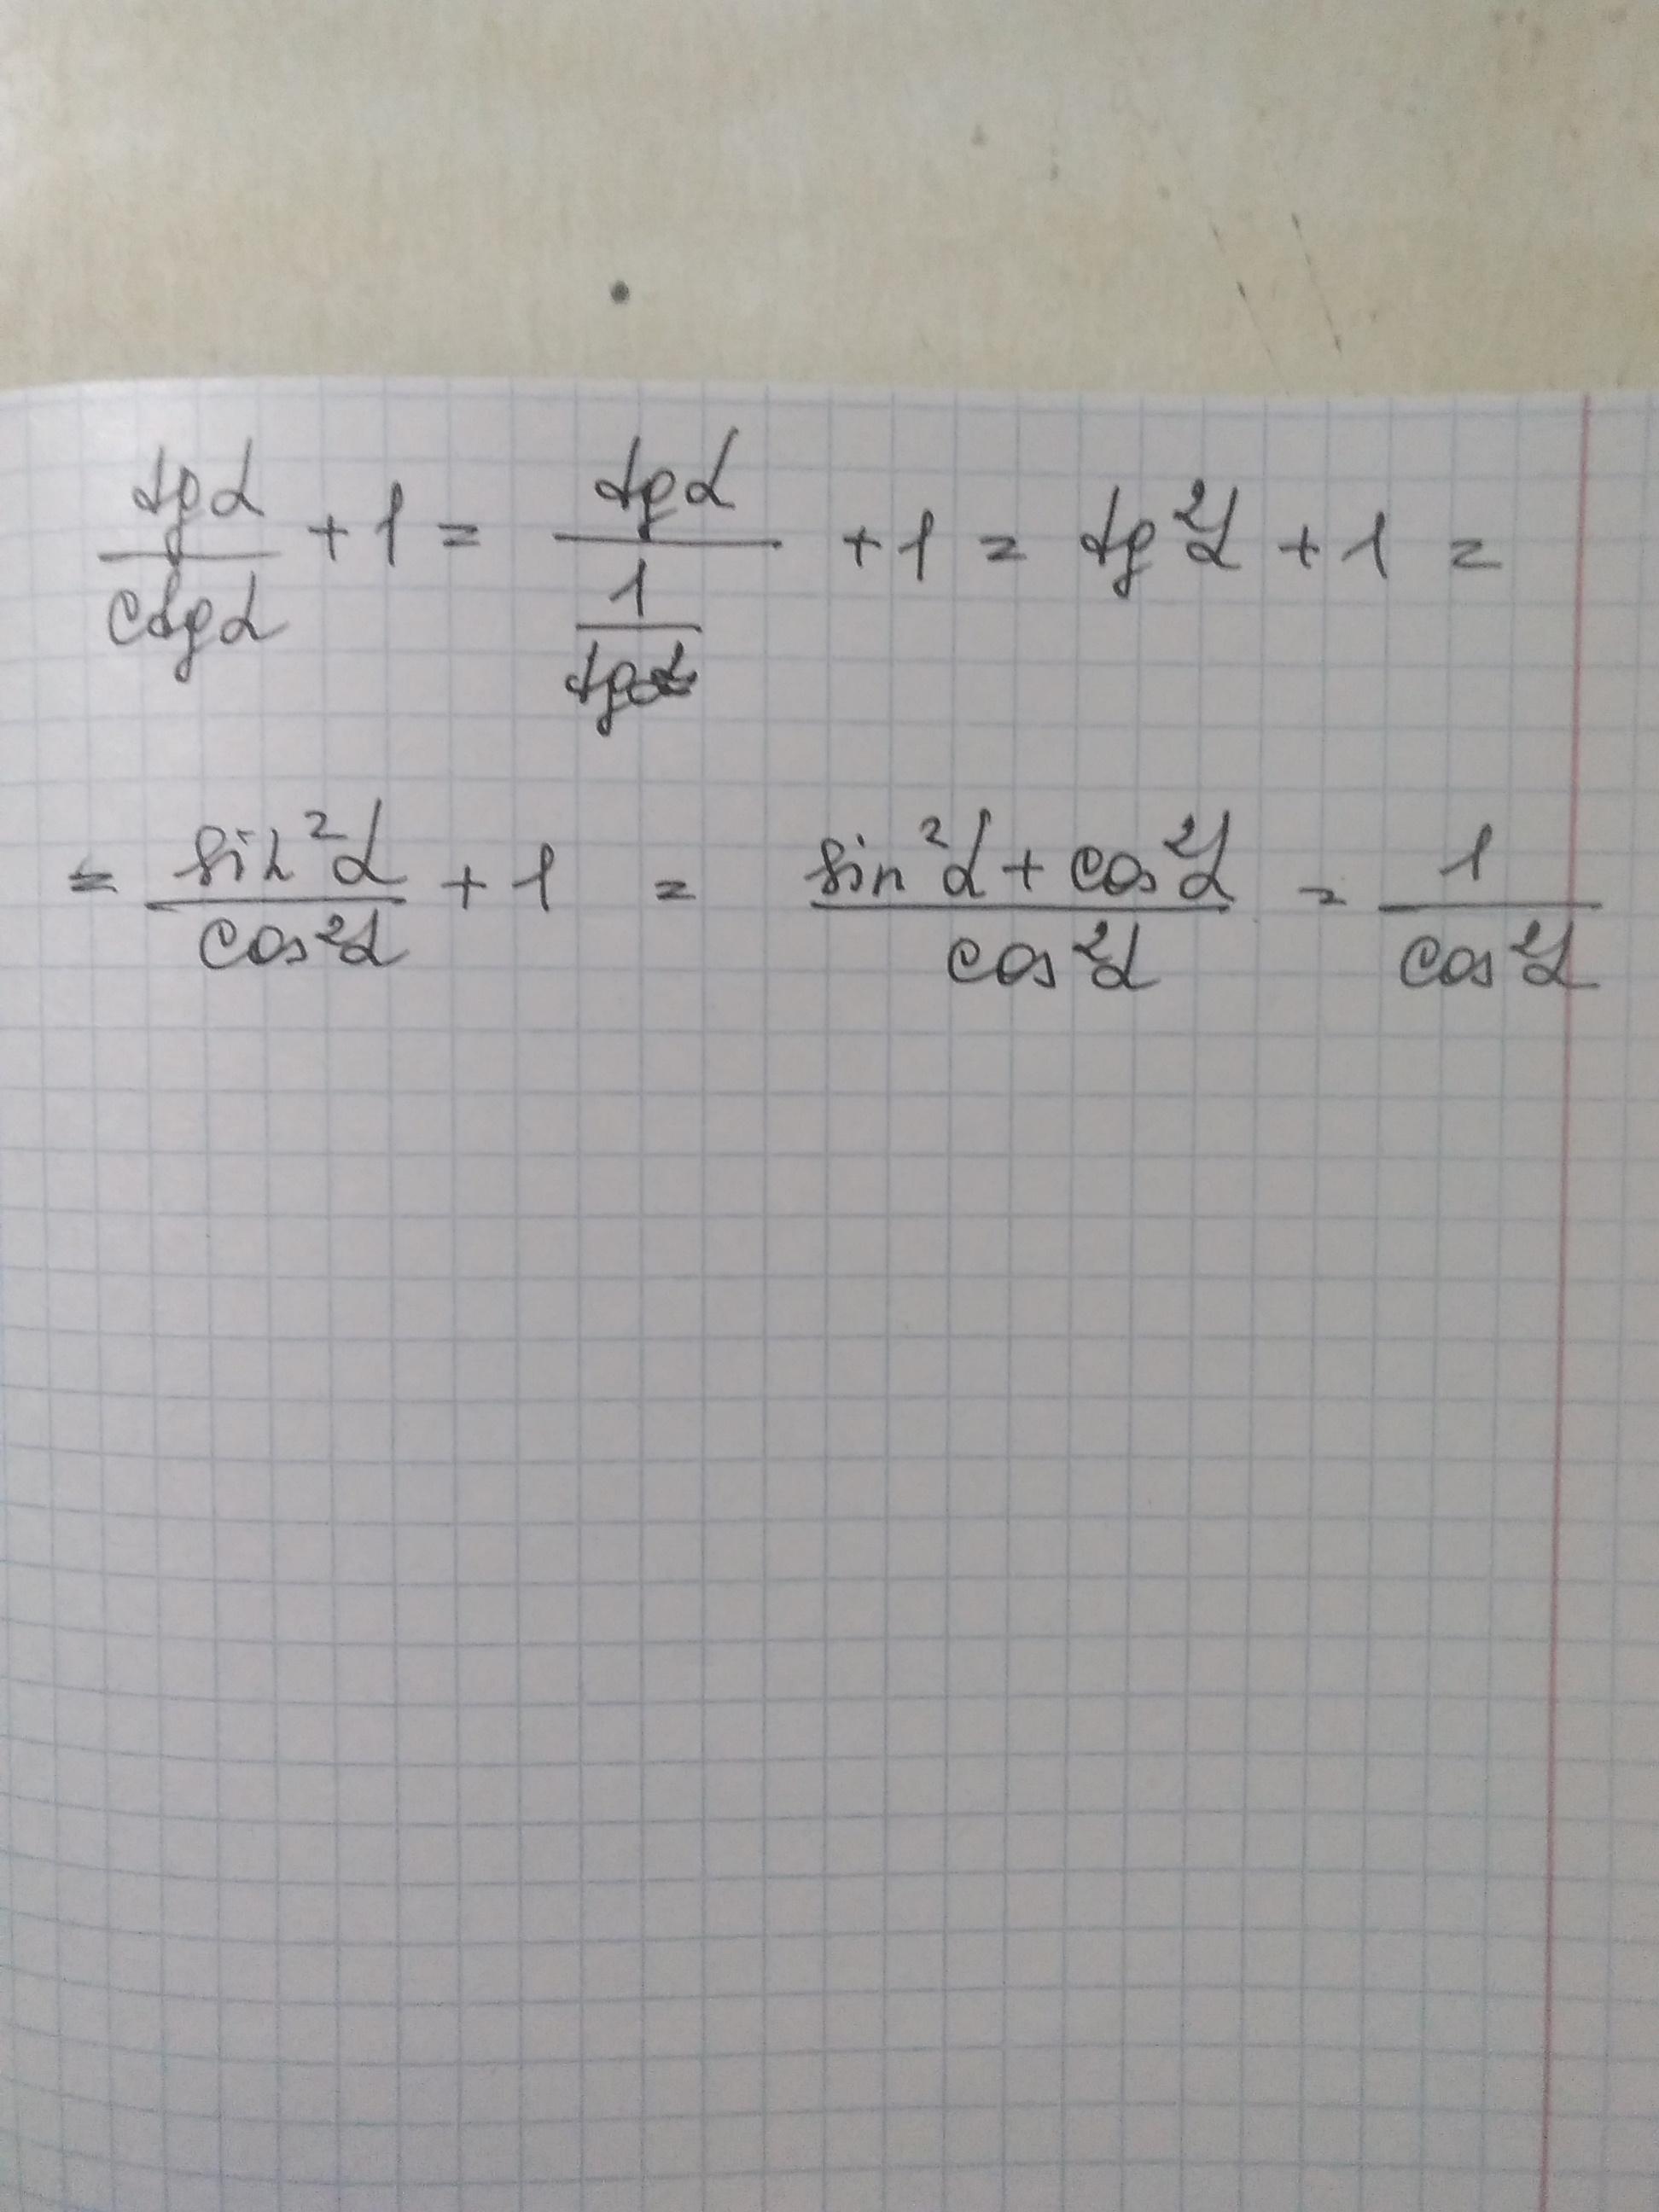 tgα/ctgα + 1 = tgα/(1/tgα) + 1 = tg²α + 1 =
= sin²α/cos²α + 1 = (sin²α + cos²α)/cos²α = 1/cos²α